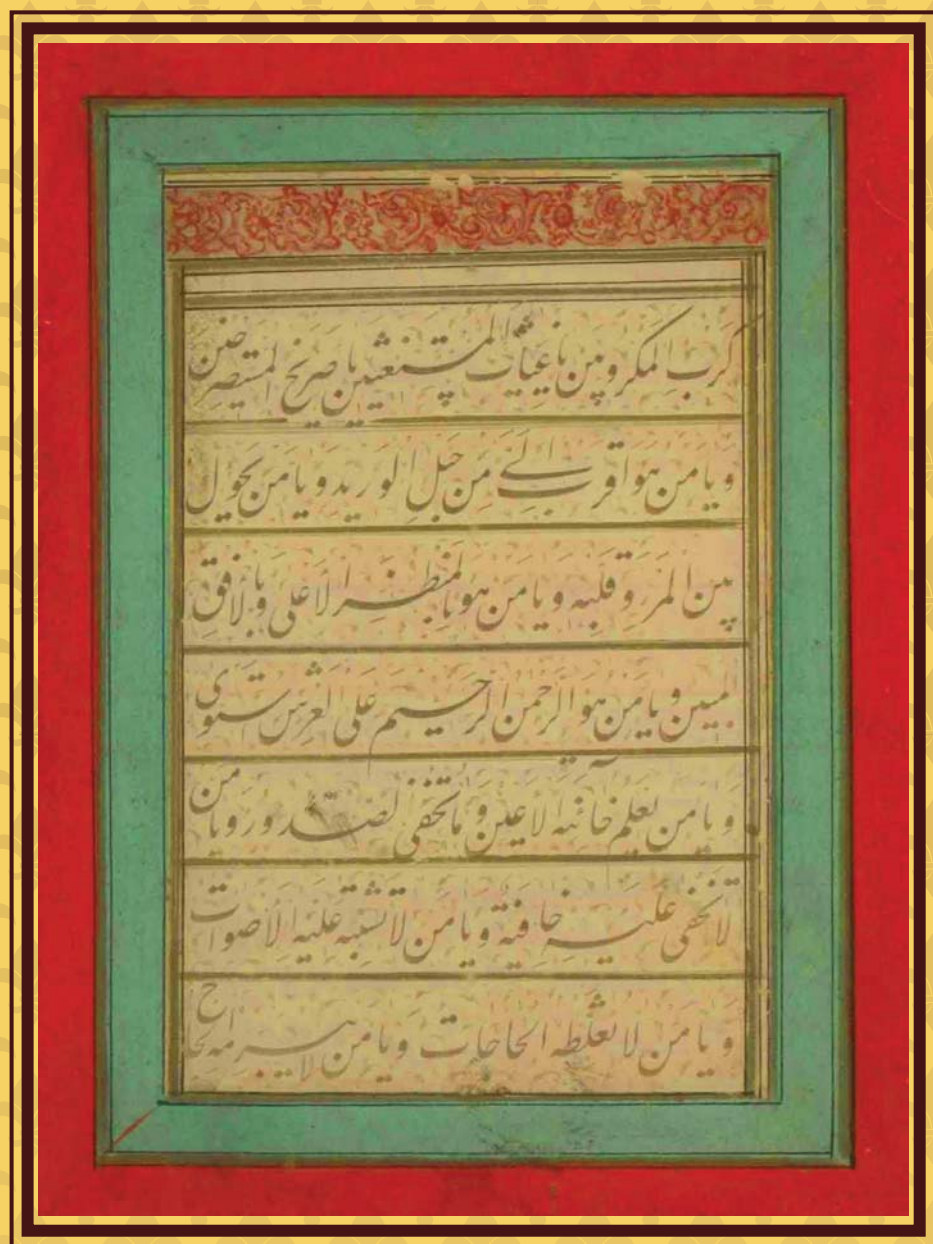 كرب المكروبين يا غياث المستغيثين يا صريخ المستصرخين
و يا من هو اقرب الي من حبل الوريد و يا من يحول
بين المرء و قلبه و يا من هو بالمنظر الاعلى و بالافق
المبين و يا من هو الرحمن الرحيم على العرش استوى
و يا من يعلم خائنة الاعين و ما تخفى الصدور و يا من
لا تخفى عليه خافية و يا من لا تشتبه عليه الاصوات
و يا من لا تغلطه الحاجات و يا من لا يبرمه الحاح